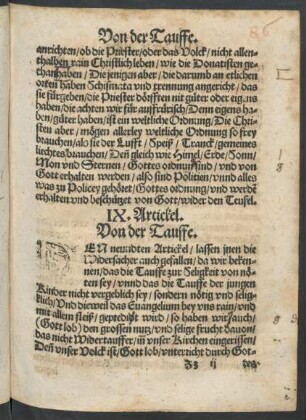 Von der Tauffe.
anrichten/ob die Priester/oder das Volck/nicht allen-
thalben rain Christlich leben/wie die Donatisten ge-
than haben/Diejenigen aber/die darumb an etlichen
orten haben Schismata vnd trennung angericht/das
sie fürgeben/die Priester dörffen nit güter oder eigens
haben/die achten wir für auffrürisch/Denn eigens ha-
ben/güter haben/ist ein weltliche Ordnung/Die Chri-
sten aber/mögen allerley weltliche Ordnung so frey
brauchen/als sie der Lufft/Speiß/Tranck/gemeines
liechtes brauchen/Deñ gleich wie Himel/Erde/Sonn/
Mon vnd Sternen/Gottes ordnung sind/vnd von
Gott erhalten werden/also sind Politien/vnnd alles
was zu Policey gehöret/Gottes ordnung/vnd werdẽ
erhalten vnd beschützet von Gott/wider den Teufel.
IX. Artickel.
Von der Tauffe.
DEN neundten Artickel/lassen jnen die
Widersacher auch gefallen/da wir beken-
nen/das die Tauffe zur Seligkeit von nö-
ten sey/vnnd das die Tauffe der jungen
Kinder nicht vergeblich sey/sondern nötig vnd selig-
lich/Vnd dieweil das Euangelium bey vns rain/vnd
mit allem fleiß/geprediget wird/so haben wir auch/
(Gott lob) den grossen nutz/vnd selige frucht dauon/
das nicht Widertauffer/iñ vnser Kirchen eingerissen/
Deñ vnser Volck ist/Gott lob/vnterricht durch Got-
ij tes